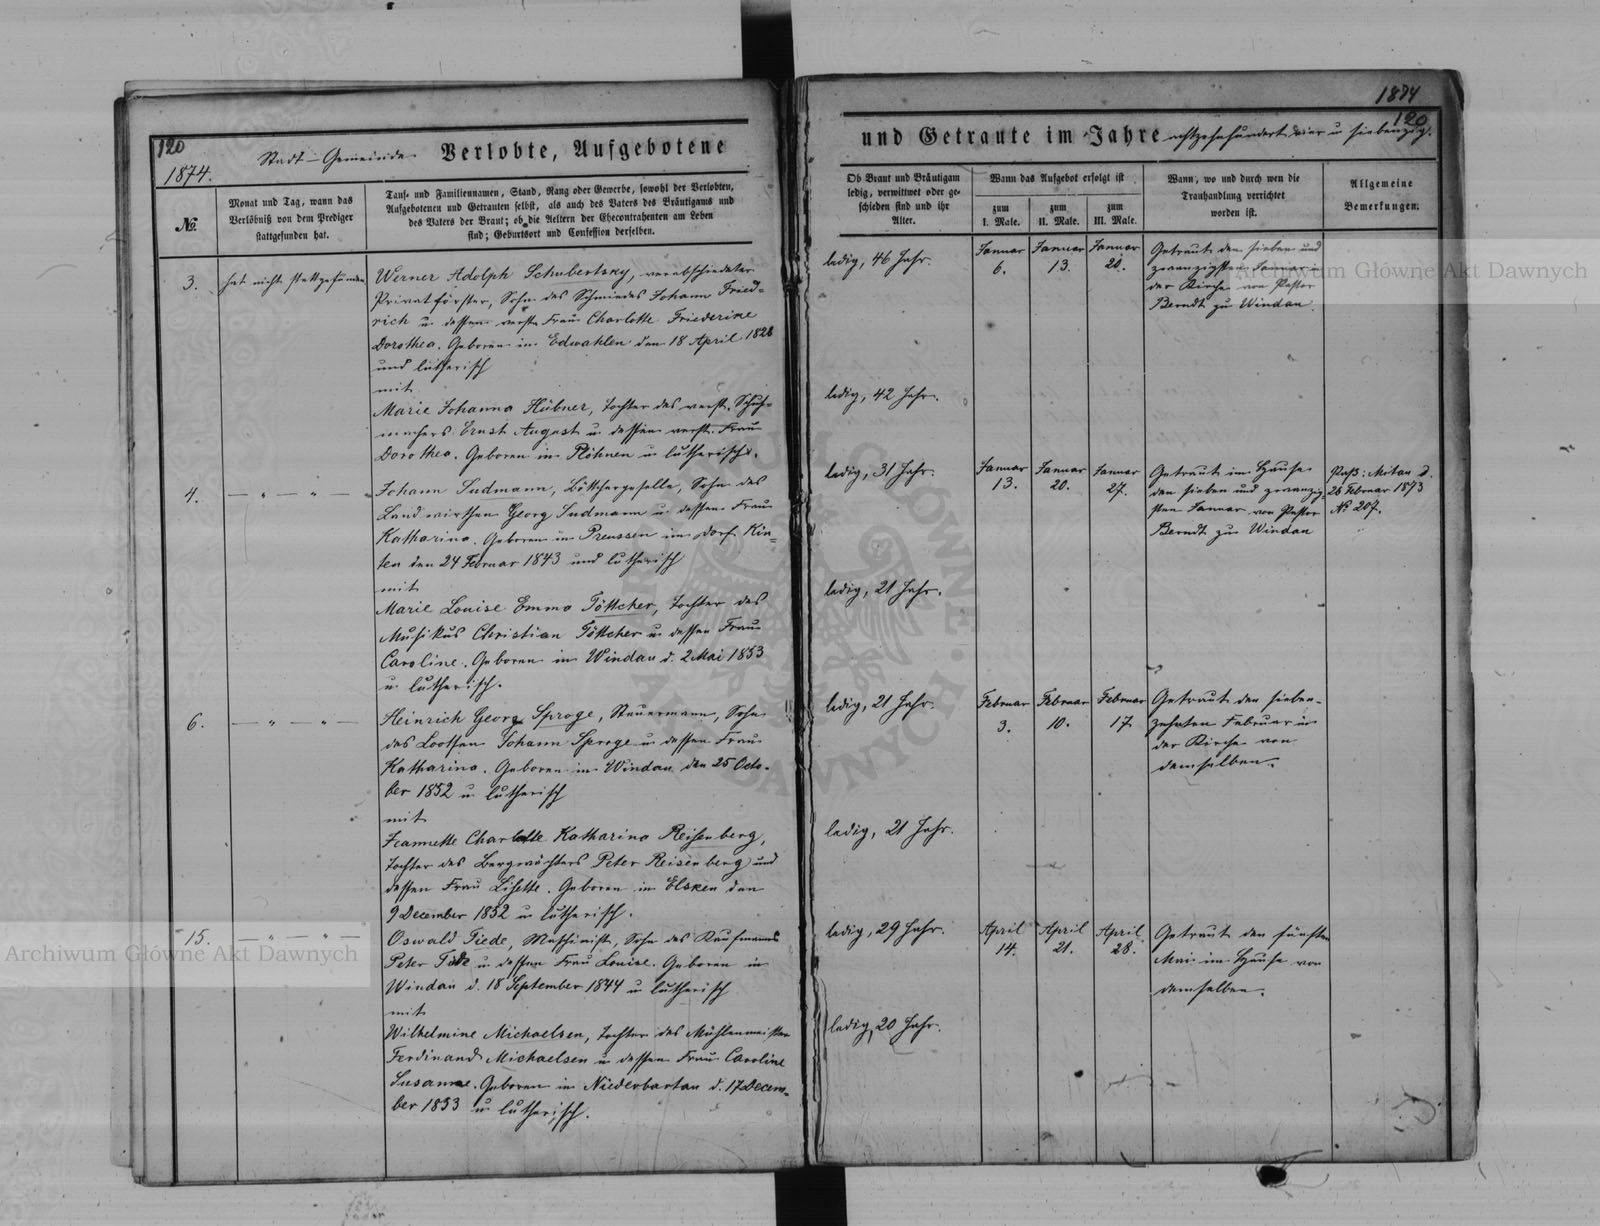 120
1874.
Stadt-Gemeinde Verlobte, Aufgebotene
№.
Monat und Tag, wann das
Verlöbniß von dem Prediger
stattgefunden hat.
Tauf- und Familiennamen, Stand, Rang oder Gewerbe, sowohl der Verlobten,
Aufgebotenen und Getrauten selbst, als auch des Vaters des Bräutigams und
des Vaters der Braut; ob die Aeltern der Ehecontrahenten am Leben
sind; Geburtsort und Confession derselben.
3.
hat nicht stattgefunden
Werner Adolph Schubertsky, verabschiedeter
Privatförster, Sohn des Schmiedes Johann Fried-
rich u. dessen verst. Frau Charlotte Friederike
Dorothea. Geboren in Edwahlen den 18 April 1828
und lutherisch
mit
Marie Johanna Hübner, Tochter des verst. Schuh-
machers Ernst August u. dessen verst. Frau
Dorothea. Geboren in Plöhnen u. lutherisch.
4.
— " — " —
Johann Sudmann, Böttchergeselle, Sohn des
Landwirthen Georg Sudmann u. dessen Frau
Katharina. Geboren in Preussen im Dorf Kin-
ten den 24 Februar 1843 und lutherisch
mit
Marie Louise Emma Töttcher, Tochter des
Musikus Christian Töttcher u. dessen Frau
Caroline. Geboren in Windau d. 2 Mai 1853
u. lutherisch.
6.
— " — " —
Heinrich Georg Sproge, Steuermann, Sohn
des Lootsen Johann Sproge u. dessen Frau
Katharina. Geboren in Windau den 25 Octo-
ber 1852 u. lutherisch
mit
Jeannette Charlotte Katharina Reisenberg,
Tochter des Bergwächters Peter Reisenberg und
dessen Frau Lisette. Geboren in Elsken den
9 December 1852 u. lutherisch.
15.
— " — " —
Oswald Tiede, Maschinist, Sohn des Kaufmanns
Peter Tiede u. dessen Frau Louise. Geboren in
Windau d. 18 September 1844 u. lutherisch
mit
Wilhelmine Michaelsen, Tochter des Mühlenmeister
Ferdinand Michaelsen u. dessen Frau Caroline
Susanne. Geboren in Niederbartau d. 17 Decem-
ber 1853 u. lutherisch.
1874
120
und Getraute im Jahre achtzehnhundert vier u siebenzig.
Ob Braut und Bräutigam
ledig, verwittwet oder ge-
schieden sind und ihr
Alter.
Wann das Aufgebot erfolgt ist
zum
I. Male.
zum
II. Male.
zum
III. Male.
Wann, wo und durch wen die
Trauhandlung verrichtet
worden ist.
Allgemeine
Bemerkungen.
ledig, 46 Jahr.
Januar
6.
Januar
13.
Januar
20.
Getraut den sieben und
zwanzigsten Januar in
der Kirche von Pastor
Berndt zu Windau.
ledig, 42 Jahr.
ledig, 31 Jahr.
Januar
13.
Januar
20.
Januar
27.
Getraut im Hause
den sieben und zwanzig-
sten Januar von Pastor
Berndt zu Windau
Paß: Mitau d.
26 Februar 1873
№ 207.
ledig, 21 Jahr.
ledig, 21 Jahr.
Februar
3.
Februar
10.
Februar
17.
Getraut den sieben-
zehnten Februar in
der Kirche von
demselben.
ledig, 21 Jahr.
ledig, 29 Jahr.
April
14.
April
21.
April
28.
Getraut den fünften
Mai im Hause von
demselben.
ledig, 20 Jahr.
Archiwum Główne Akt Dawnych
Archiwum Główne Akt Dawnych
ARCHIWUM GŁÓWNE AKT DAWNYCH